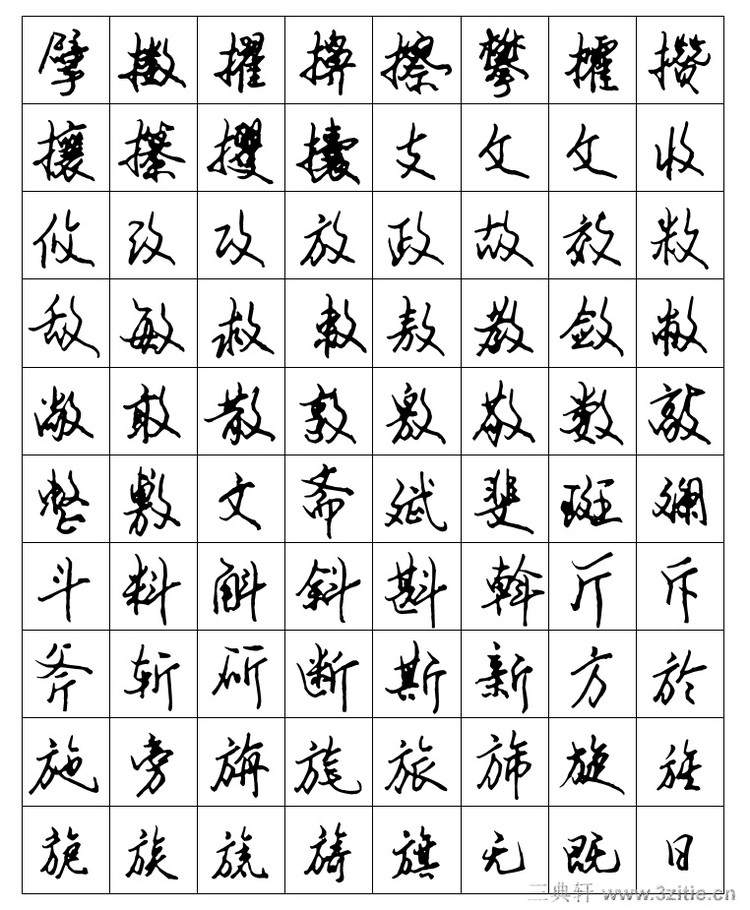 擘擞擢擤擦攀攉攒
攘攀攫攮支攵攵收
攸改攻放政故效敉
敌敏救敕敖教敛敝
敞敢散敦敫敬数敲
整敷文斋斌斐斑斓
斗料斛斜斟斡斤斥
斧斩斫断斯新方於
施旁旃旄旅旆旋旌
旎族旒旖旗无既日
三典轩 www.3zitie.cn